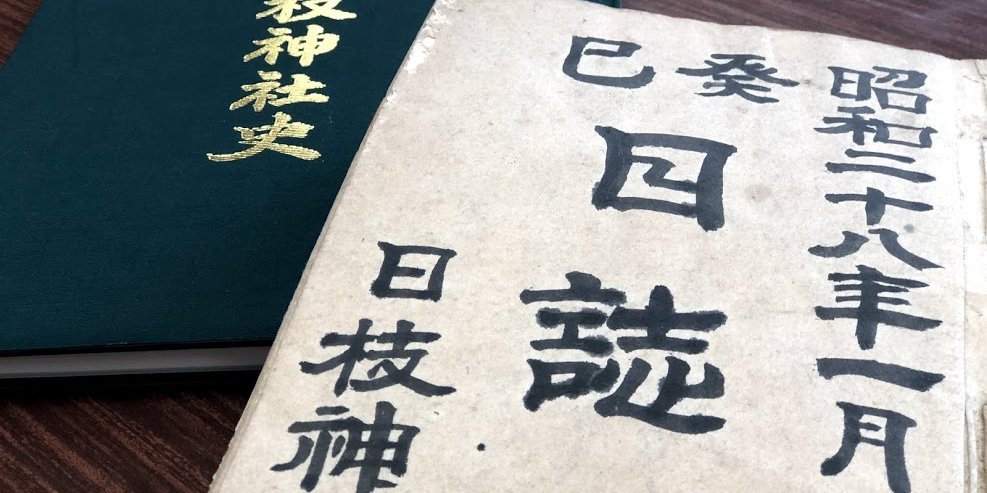 昭和二十八年一月
癸巳
日誌
日枝神
枝神社史